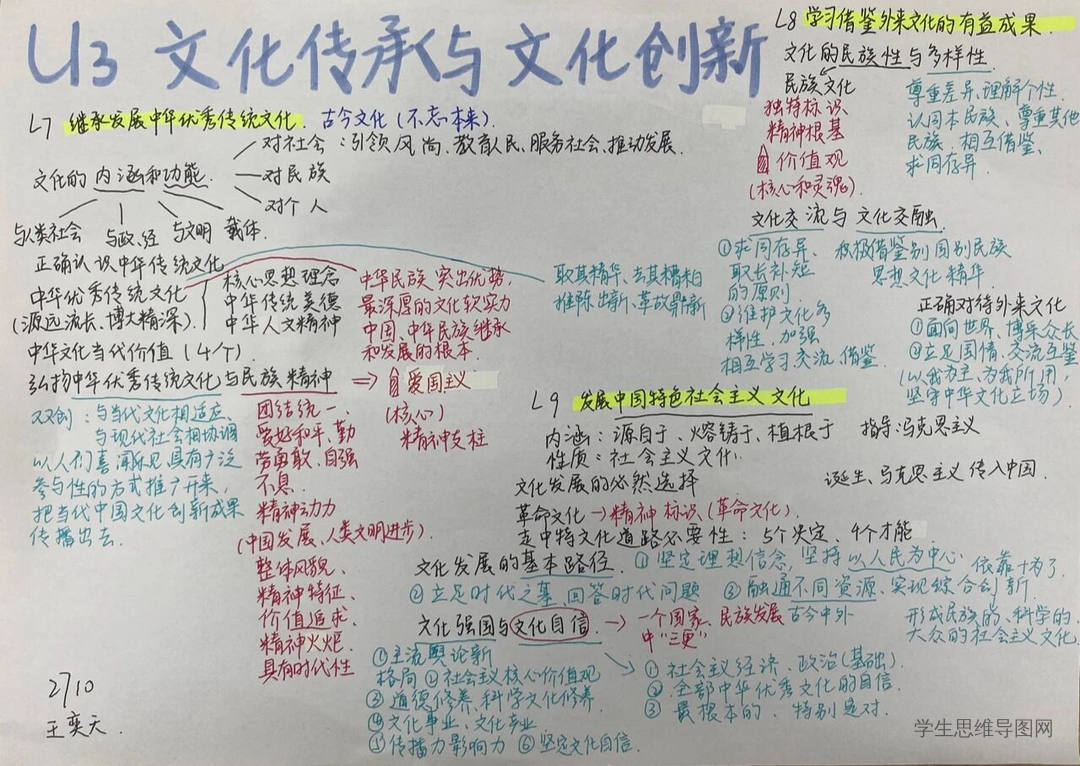 U3 文化传承与文化创新
L7 继承发展中华优秀传统文化. 古今文化(不忘本来).
文化的内涵和功能.
对社会:引领风尚、教育人民、服务社会、推动发展.
对民族
对个人
与人类社会 与政、经 与文明 载体.
正确认识中华传统文化
中华优秀传统文化
(源远流长、博大精深).
核心思想理念
中华传统美德
中华人文精神
中华民族突出优势,
最深厚的文化软实力
中国、中华民族继承
和发展的根本.
取其精华、去其糟粕
推陈出新、革故鼎新
中华文化当代价值(4个).
弘扬中华优秀传统文化与民族精神
⇒ 爱国主义
(核心)
精神支柱
双创:与当代文化相适应、
与现代社会相协调
以人们喜闻乐见、具有广泛
参与性的方式推广开来,
把当代中国文化创新成果
传播出去.
团结统一、
爱好和平、勤
劳勇敢、自强
不息.
精神动力
(中国发展、人类文明进步).
整体风貌、
精神特征、
价值追求、
精神火炬.
具有时代性
L8 学习借鉴外来文化的有益成果.
文化的民族性与多样性.
民族文化
独特标识
精神根基
价值观
(核心和灵魂).
尊重差异、理解个性
认同本民族、尊重其他
民族、相互借鉴、
求同存异.
文化交流与文化交融.
①求同存异、
取长补短
的原则
②维护文化多
样性、加强
相互学习、交流、借鉴
积极借鉴别国别民族
思想文化精华
正确对待外来文化
①面向世界、博采众长
②立足国情、交流互鉴
(以我为主、为我所用,
坚守中华文化立场)
L9 发展中国特色社会主义文化
内涵:源自于、熔铸于、植根于 指导:马克思主义
性质:社会主义文化.
文化发展的必然选择
诞生、马克思主义传入中国.
革命文化→精神标识(革命文化).
走中特文化道路必要性:5个决定、4个才能
文化发展的基本路径. ①坚定理想信念,坚持以人民为中心.依靠+为了.
②立足时代之基、回答时代问题 ③融通不同资源、实现综合创新.
古今中外
形成民族的、科学的、
大众的社会主义文化
文化强国与文化自信. → 一个国家、民族发展
中"三更"
①主流舆论新
格局 ②社会主义核心价值观
③道德修养、科学文化修养.
④文化事业、文化产业
⑤传播力影响力 ⑥坚定文化自信.
① 社会主义经济、政治(基础).
② 全部中华优秀文化的自信.
③ 最根本的、特别是对.
2710
王奕天.
学生思维导图网